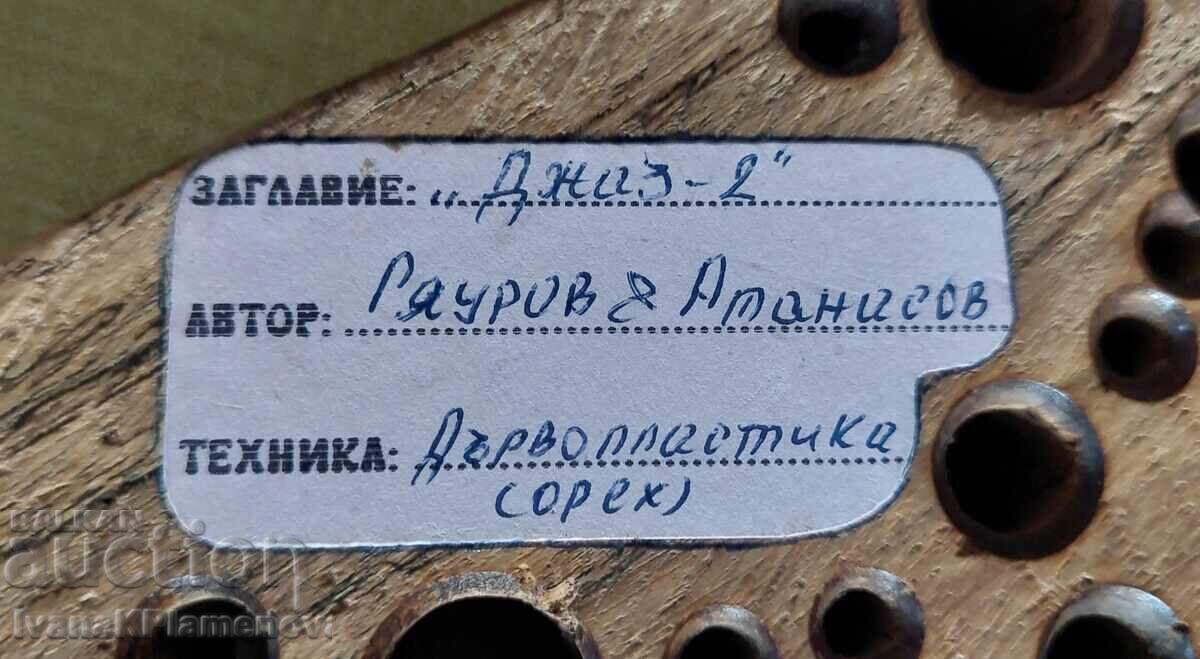 ЗАГЛАВИЕ: „Джаз-2"
АВТОР: Гяуров & Атанасов
ТЕХНИКА: Дървопластика
(орех)
BALKAN
auction
IvanaKPlamenov